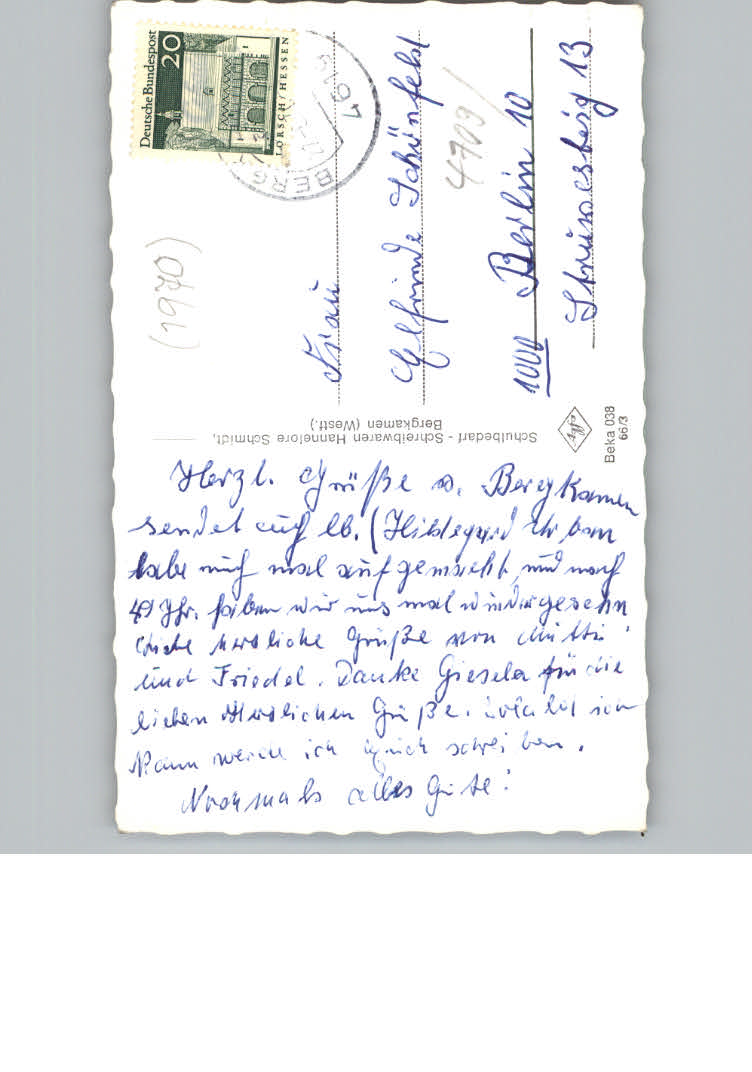 Deutsche Bundespost
20
LORSCH / HESSEN
BERG
(1970)
Frau
Elfriede Schönfeld
4703/
1000 Berlin 10
13
Schulbedarf - Schreibwaren Hannelore Schmidt,
Bergkamen (Westf.)
Beka 038
66/3
Herzl. Grüße v. Bergkamen
sendet euch lb. (Hildegard
habe mich mal aufgemacht, und nach
49 Jhr. haben wir uns mal wiedergesehn
herzliche Grüße von Mutti
und Friedel. Danke Giesela für die
lieben Herzlichen Grüße. ich
kann werde ich Euch schreiben.
Nochmals alles Gute!